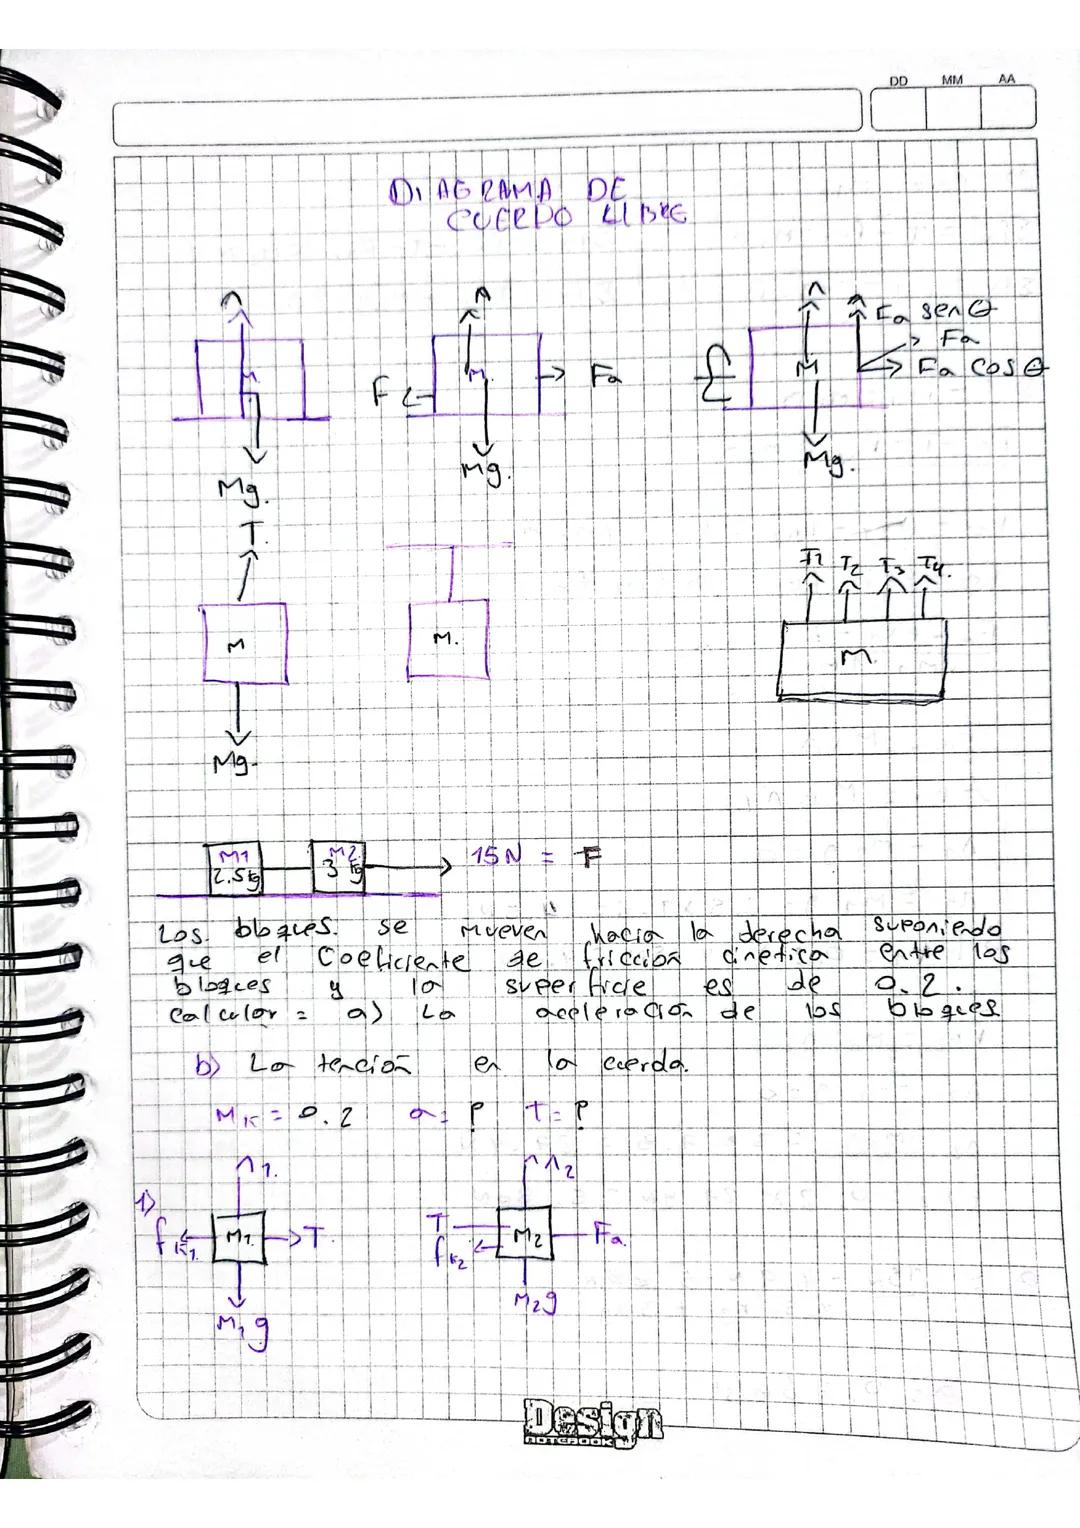 DD MM AA
DIAGRAMA DE
CUERPO LIBRE
M
Mg.
n
F
M.
Fa
Mg.
n
Fa senθ
Fa
Fa cosθ
f
M
Mg.
T.
M
Mg.
M.
T1 T2 T3 T4.
M
M1
2.5kg
M2
3 kg
15N = F
Los bloques. se mueven hacia la derecha suponiendo
que el Coeficiente de fricción cinetica entre los
bloques y la superficie es de 0.2.
calcular = a) La aceleración de los bloques
b) La tención en la cuerda.
Mk = 0.2 a = ? T = ?
1)
n1.
fk1.
M1.
T.
M1g
n2
T
fk2
M2
Fa.
M2g
Design
NOTEBOOK